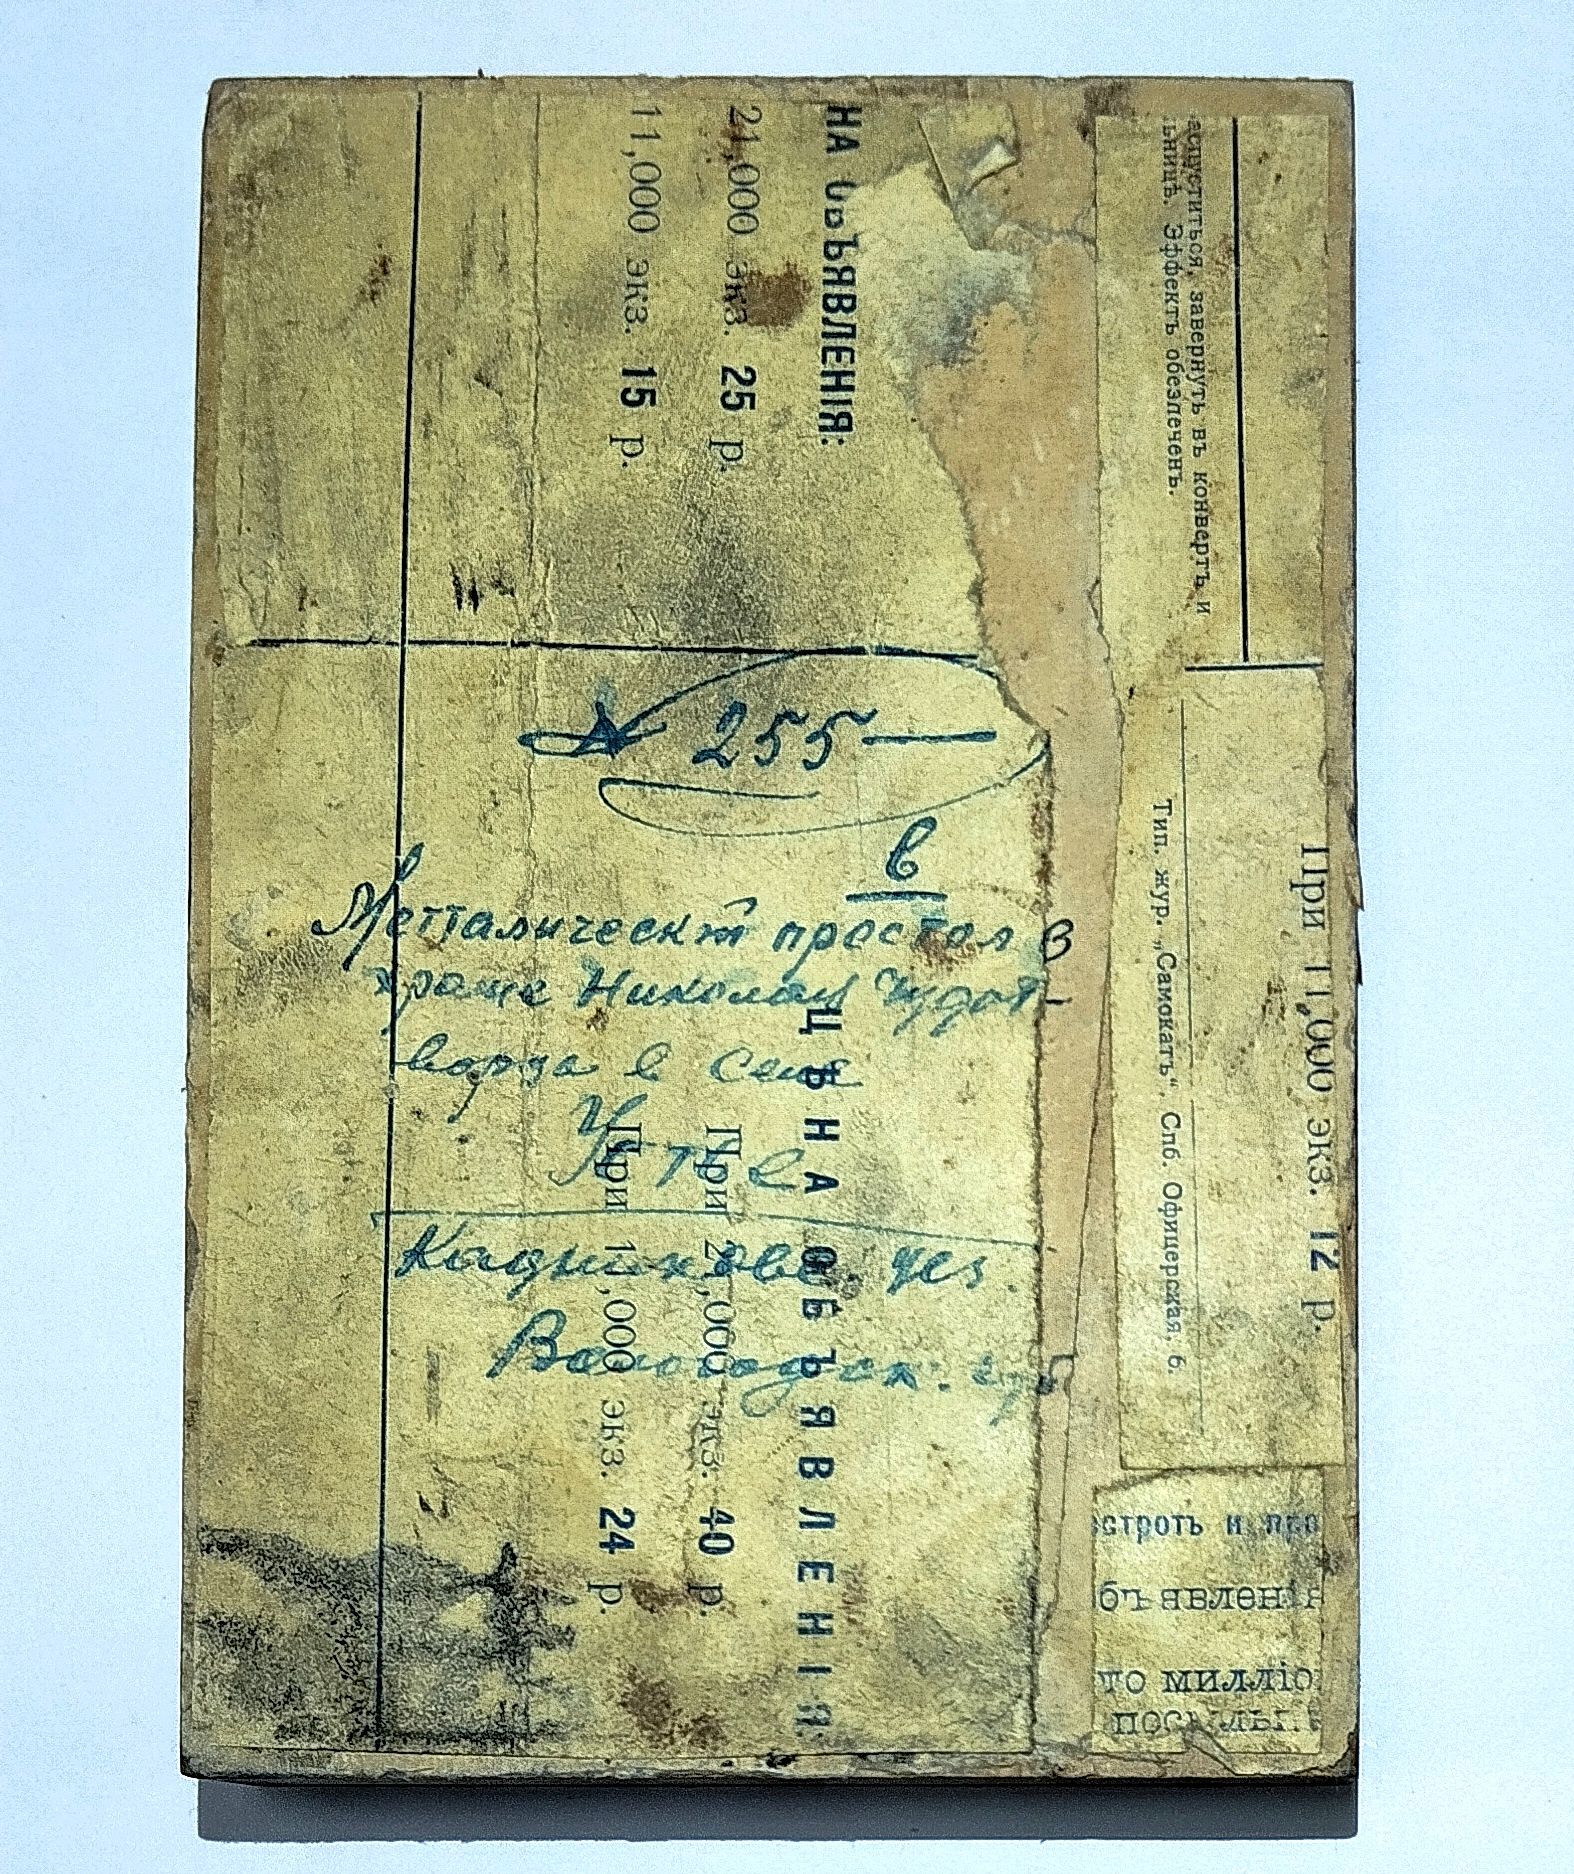 НА ОБЪЯВЛЕНІЯ:
21,000 экз. 25 р.
11,000 экз. 15 р.
распуститься, завернуть въ конвертъ и
льницѣ. Эффектъ обезпеченъ.
№ 255 —
в
Метталическ престол в
храме Николая Чудот-
ворца в селе
Устье
Кадниковс. уез.
Вологодск. губ
ЦѢНА ОБЪЯВЛЕНІЯ
При 2,000 экз. 40 р.
При 1,000 экз. 24 р.
При 11,000 экз. 12 р.
Тип. жур. „Самокатъ“. Спб. Офицерская, 6.
остротъ и про
бъявленія
то милліо